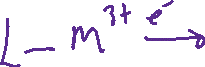 L - M³⁺ e⁻ →